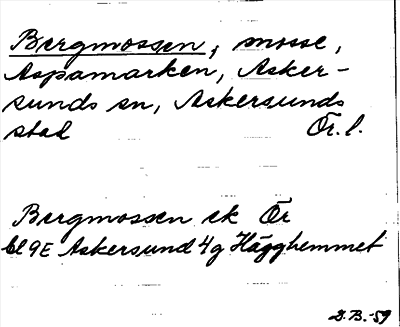 Bergmossen, mosse,
Aspamarken, Asker-
sunds sn, Askersunds
stad Ör. l.
Bergmossen ek Ör
bl 9E Askersund 4g Hägghemmet
D.B.-59